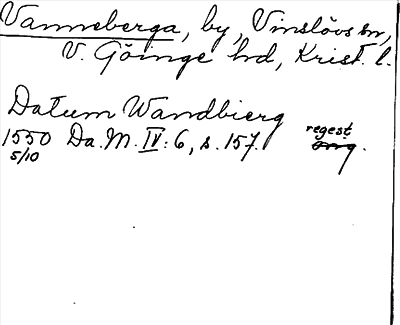 Vanneberga, by, Vinslövs sn,
V. Göinge hd, Krist. l.
Datum Wandbierg
1550 Da. M. IV: 6, s. 157. regest
5/10 orig.